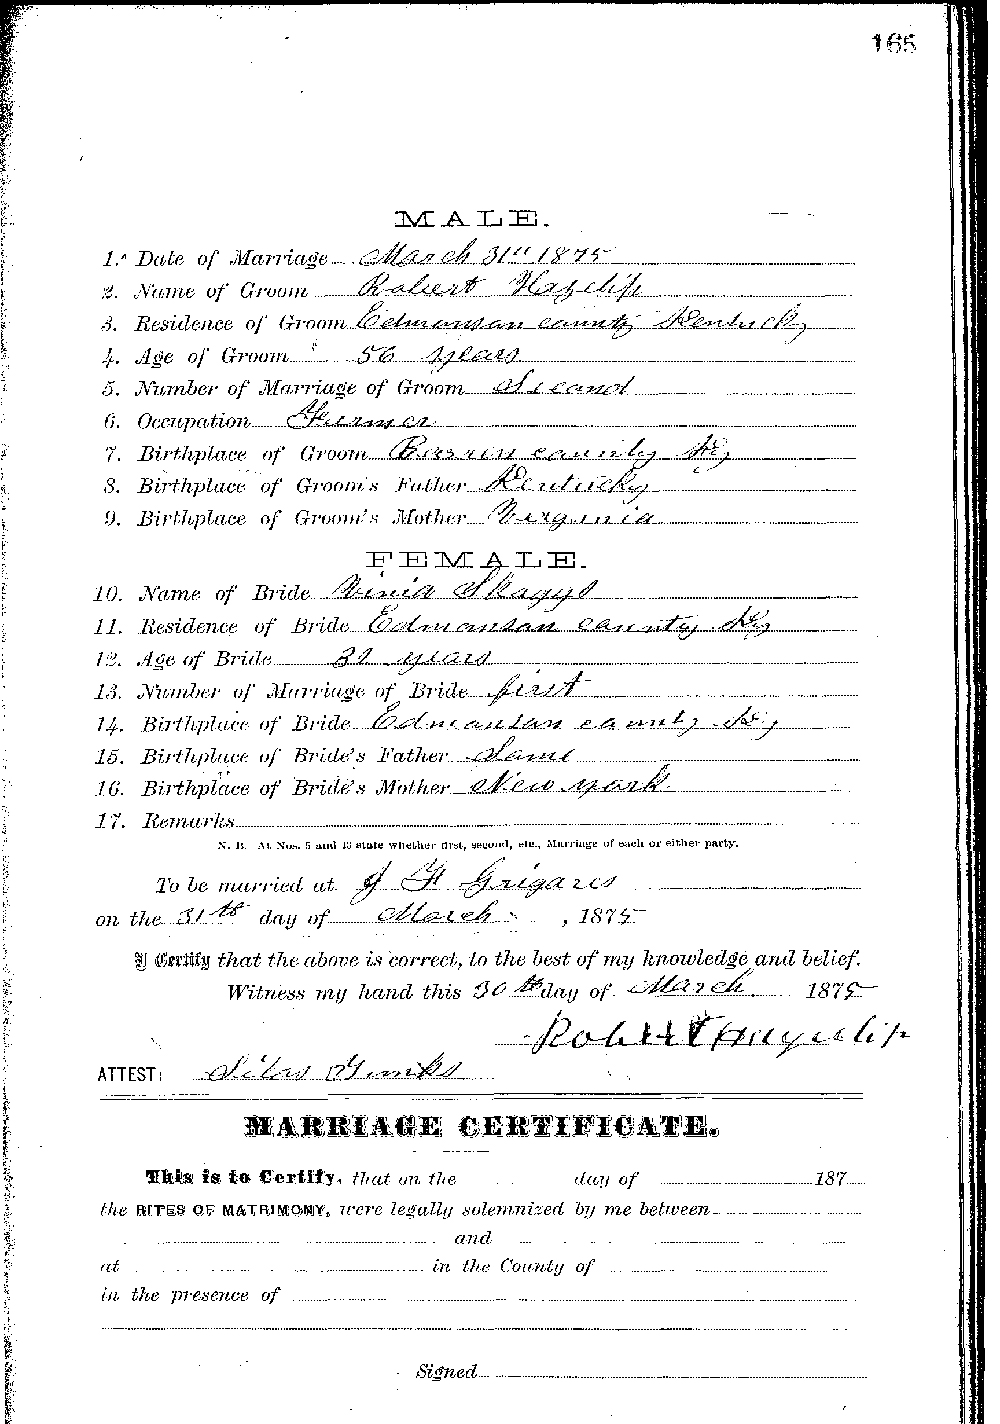 165
MALE.
1. Date of Marriage March 31st 1875
2. Name of Groom Robert Hayclip
3. Residence of Groom Edmonson county Kentucky
4. Age of Groom 56 years
5. Number of Marriage of Groom Second
6. Occupation Farmer
7. Birthplace of Groom Barren county Ky
8. Birthplace of Groom's Father Kentucky
9. Birthplace of Groom's Mother Virginia
FEMALE.
10. Name of Bride Vinia Skaggs
11. Residence of Bride Edmonson county Ky
12. Age of Bride years
13. Number of Marriage of Bride first
14. Birthplace of Bride Edmonson county Ky
15. Birthplace of Bride's Father Same
16. Birthplace of Bride's Mother New york
17. Remarks
N. B. At Nos. 5 and 13 state whether first, second, etc., Marriage of each or either party.
To be married at J H
on the 31th day of March , 1875
I Certify that the above is correct, to the best of my knowledge and belief.
Witness my hand this 30th day of March 1875
Robert Hayclip
ATTEST: Silas
MARRIAGE CERTIFICATE.
This is to Certify, that on the day of 187
the RITES OF MATRIMONY, were legally solemnized by me between
and
at in the County of
in the presence of
Signed